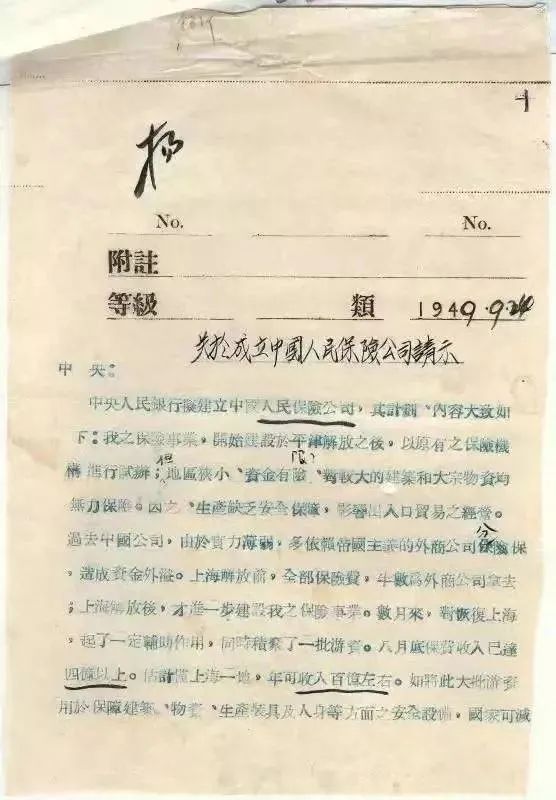 No.
No.
附註
等級 類 1949.9.24
关於成立中國人民保險公司請示
中央：
中央人民銀行擬建立中國人民保險公司，其計劃、內容大致如
下：我之保險事業，開始建設於平津解放之後，以原有之保險機
構進行試辦；但地區狹小、資金有險、限 對較大的建築和大宗物資均
無力保障。因之、生產缺乏安全保障，影響出入口貿易之經營。
過去中國公司，由於實力薄弱，多依賴帝國主義的外商公司分保險保
，造成資金外溢。上海解放前，全部保險費，半數為外商公司拿去
；上海解放後，才進一步建設我之保險事業。數月來，對恢復上海
，起了一定輔助作用，同時積聚了一批游資。八月底保費收入已達
四億以上。估計僅上海一地，年可收入百億左右。如將此大批游資
用於保障建築、物資、生產裝具及人身等方面之安全設備，國家可減